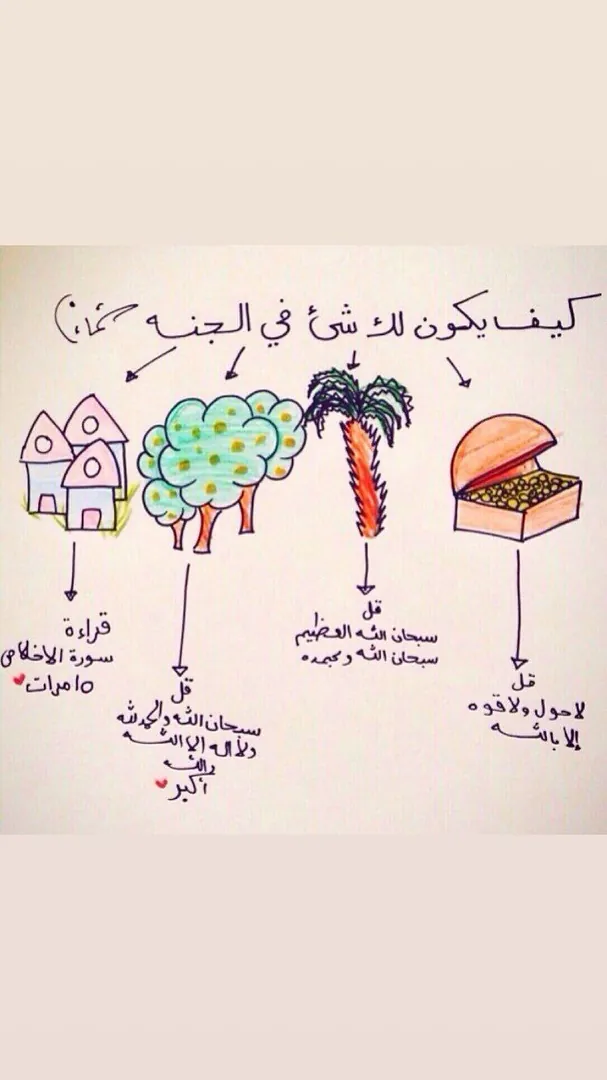 كيف يكون لك شئ في الجنه
قل
لاحول ولاقوه
إلا بالله
قل
سبحان الله العظيم
سبحان الله وبحمده
قل
سبحان الله والحمدلله
ولا اله إلا الله
والله
أكبر
قراءة
سورة الاخلاص
10 مرات